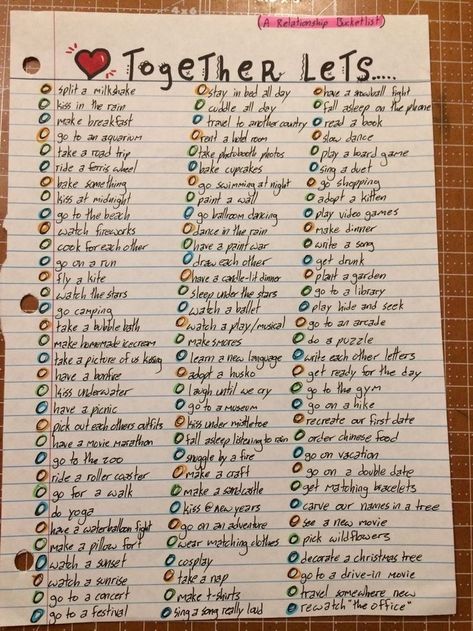 (A Relationship Bucketlist)
Together Lets.....
split a milkshake
kiss in the rain
make breakfast
go to an aquarium
take a road trip
ride a ferris wheel
bake something
kiss at midnight
go to the beach
watch fireworks
cook for each other
go on a run
fly a kite
watch the stars
go camping
take a bubble bath
make homemade icecream
take a picture of us kissing
have a bonfire
kiss underwater
have a picnic
pick out each others outfits
have a movie marathon
go to the zoo
ride a roller coaster
go for a walk
do yoga
have a waterballoon fight
make a pillow fort
watch a sunset
watch a sunrise
go to a concert
go to a festival
stay in bed all day
cuddle all day
travel to another country
rent a hotel room
take photobooth photos
bake cupcakes
go swimming at night
paint a wall
go ballroom dancing
dance in the rain
have a paint war
draw each other
have a candle-lit dinner
sleep under the stars
watch a ballet
watch a play/musical
make smores
learn a new language
adopt a husko
laugh until we cry
go to a museum
kiss under mistletoe
fall asleep listening to rain
snuggle by a fire
make a craft
make a sandcastle
kiss @ new years
go on an adventure
wear matching clothes
cosplay
take a nap
make t-shirts
sing a song really loud
have a snowball fight
fall asleep on the phone
read a book
slow dance
play a board game
sing a duet
go shopping
adopt a kitten
play video games
make dinner
write a song
get drunk
plant a garden
go to a library
play hide and seek
go to an arcade
do a puzzle
write each other letters
get ready for the day
go to the gym
go on a hike
recreate our first date
order chinese food
go on vacation
go on a double date
get matching bracelets
carve our names in a tree
see a new movie
pick wildflowers
decorate a christmas tree
go to a drive-in movie
travel somewhere new
rewatch "the office"